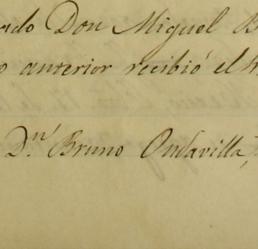 Don Miguel
anterior recibió el
D.ⁿ Bruno Ondavilla,